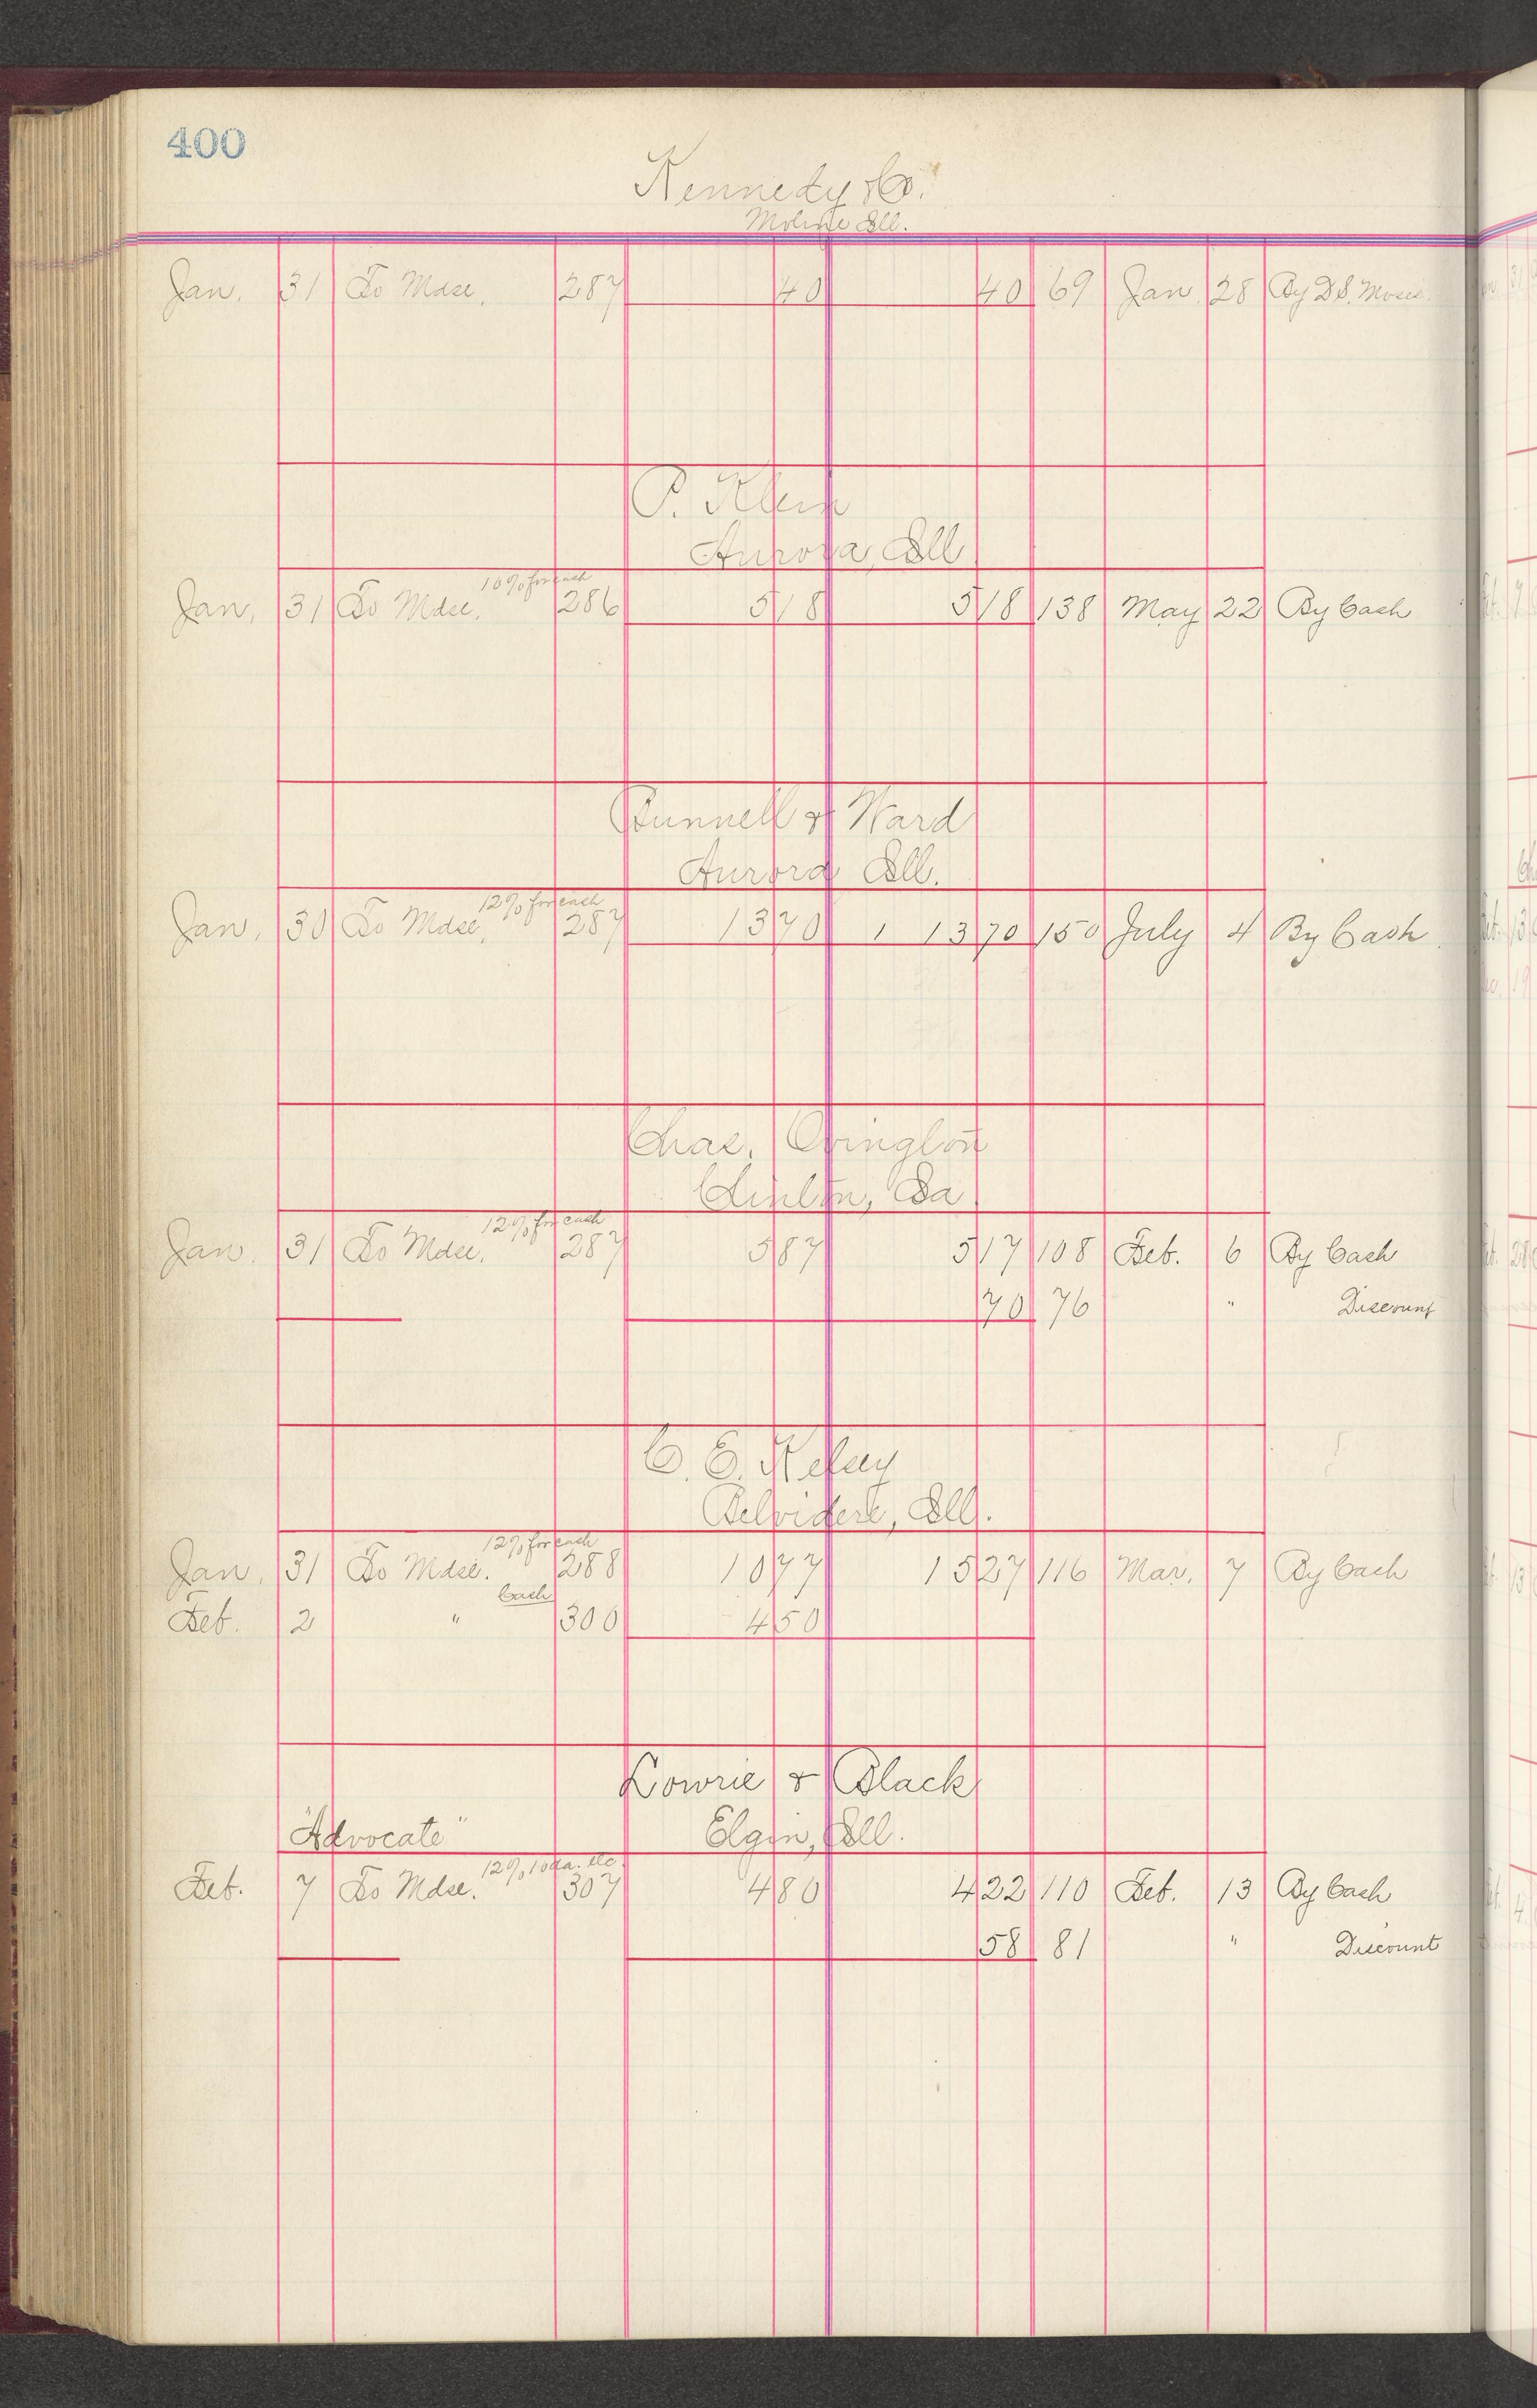 400
Kennedy & Co.
Moline Ill.
Jan. 31 To Mdse. 287 40 40 69 Jan. 28 By D.S. Mdse.
P. Klein
Aurora, Ill
10% for cash
Jan. 31 To Mdse. 286 5 18 5 18 138 May 22 By Cash
Bunnell & Ward
Aurora Ill.
12% for cash
Jan. 30 To Mdse. 287 13 70 1 13 70 150 July 4 By Cash
Chas. Ovington
Clinton, Ia
12% for cash
Jan. 31 To Mdse. 287 5 87 5 17 108 Feb. 6 By Cash
70 76 " Discount
C. E. Kelsey
Belvidere, Ill.
12% for cash
Jan. 31 To Mdse. 288 10 77 15 27 116 Mar. 7 By Cash
Cash
Feb. 2 " 300 4 50
Lowrie & Black
"Advocate" Elgin, Ill.
12% 10 da. etc
Feb. 7 To Mdse. 307 4 80 4 22 110 Feb. 13 By Cash
58 81 " Discount